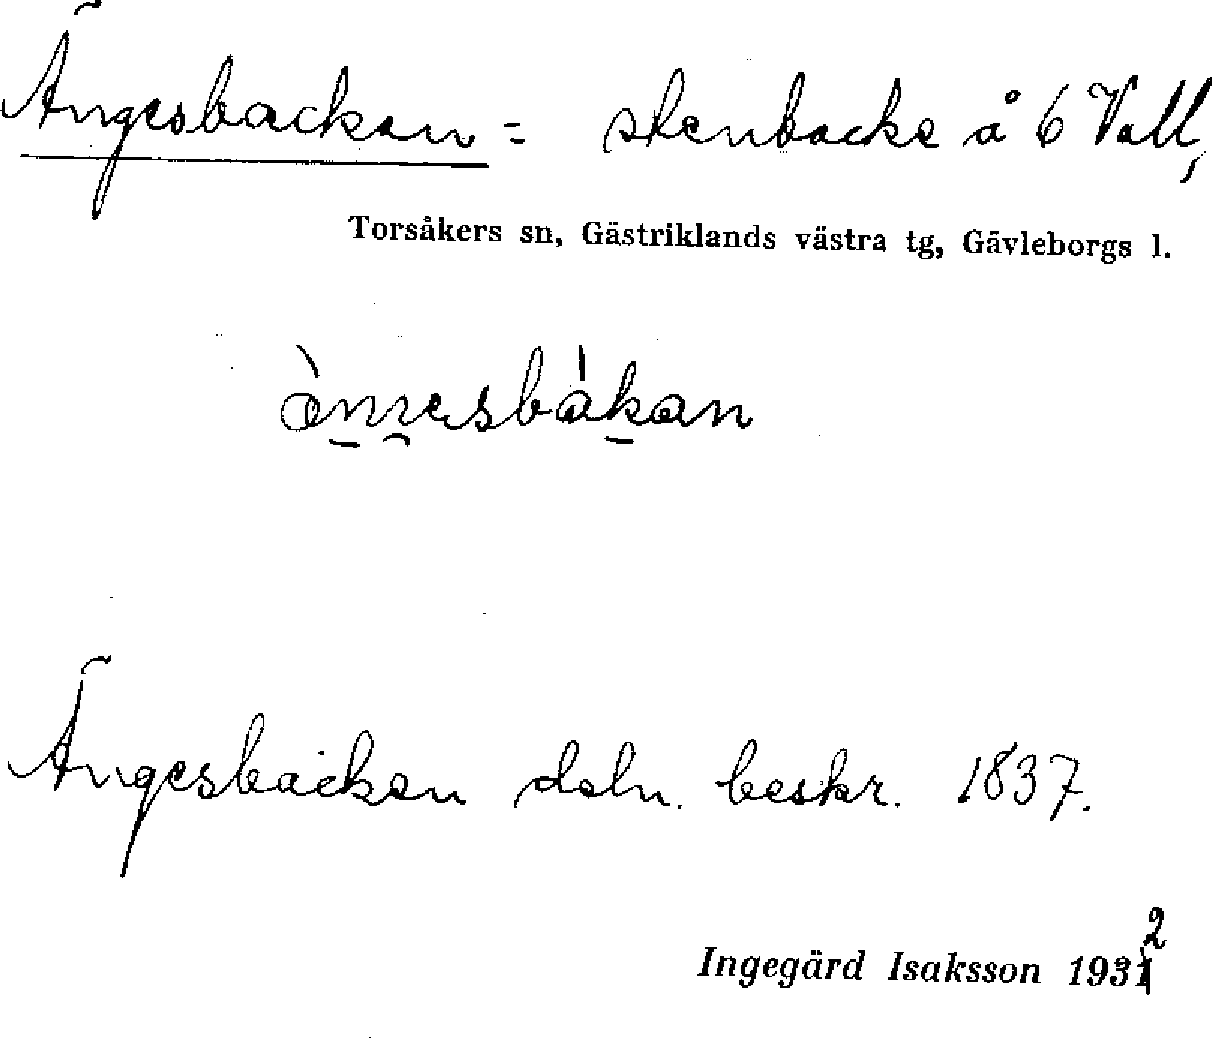 Ängesbackan = stenbacke å 6 Vall,
Torsåkers sn, Gästriklands västra tg, Gävleborgs l.
Ängesbackan dsln. beskr. 1837.
Ingegärd Isaksson 1932